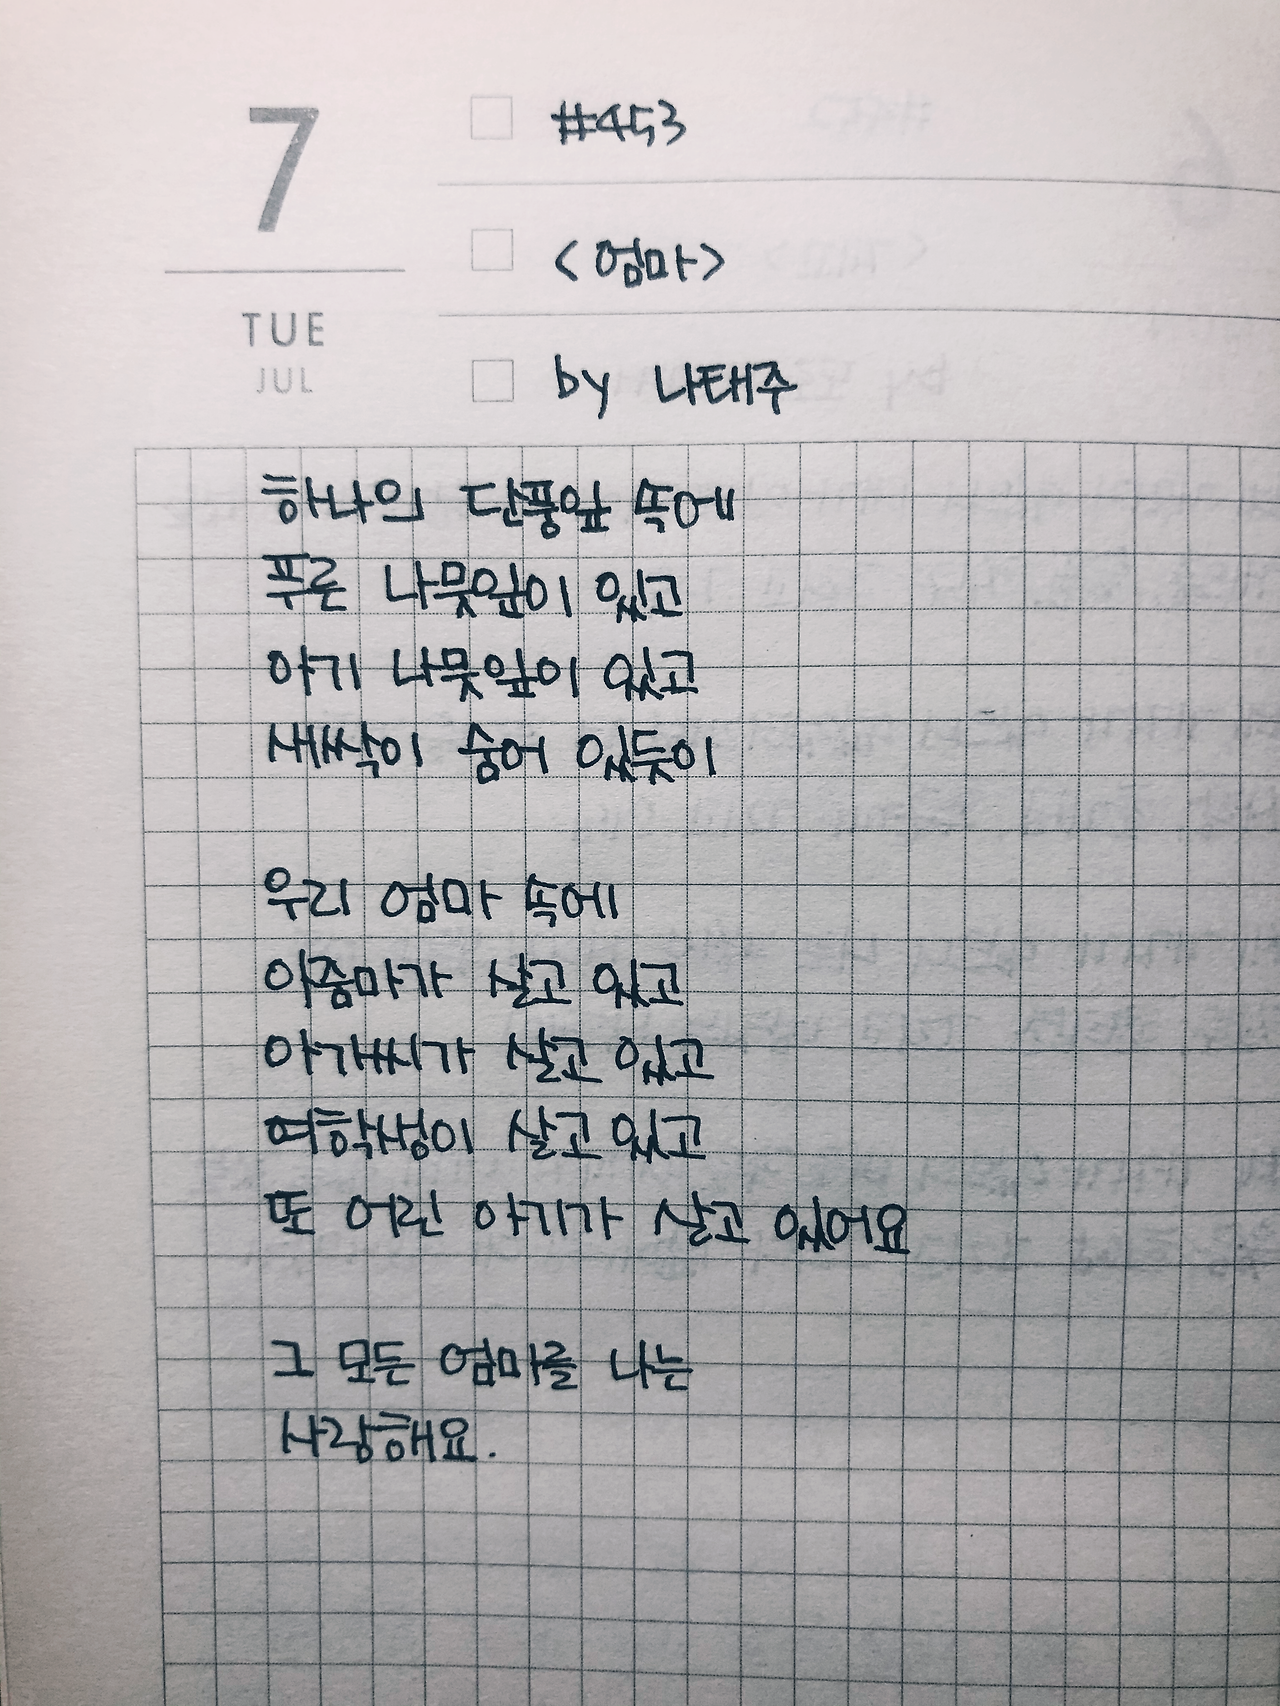 7
TUE
JUL
#453
<엄마>
by 나태주
하나의 단풍잎 속에
푸른 나뭇잎이 있고
아기 나뭇잎이 있고
새싹이 숨어 있듯이
우리 엄마 속에
아줌마가 살고 있고
아가씨가 살고 있고
여학생이 살고 있고
또 어린 아기가 살고 있어요
그 모든 엄마를 나는
사랑해요.